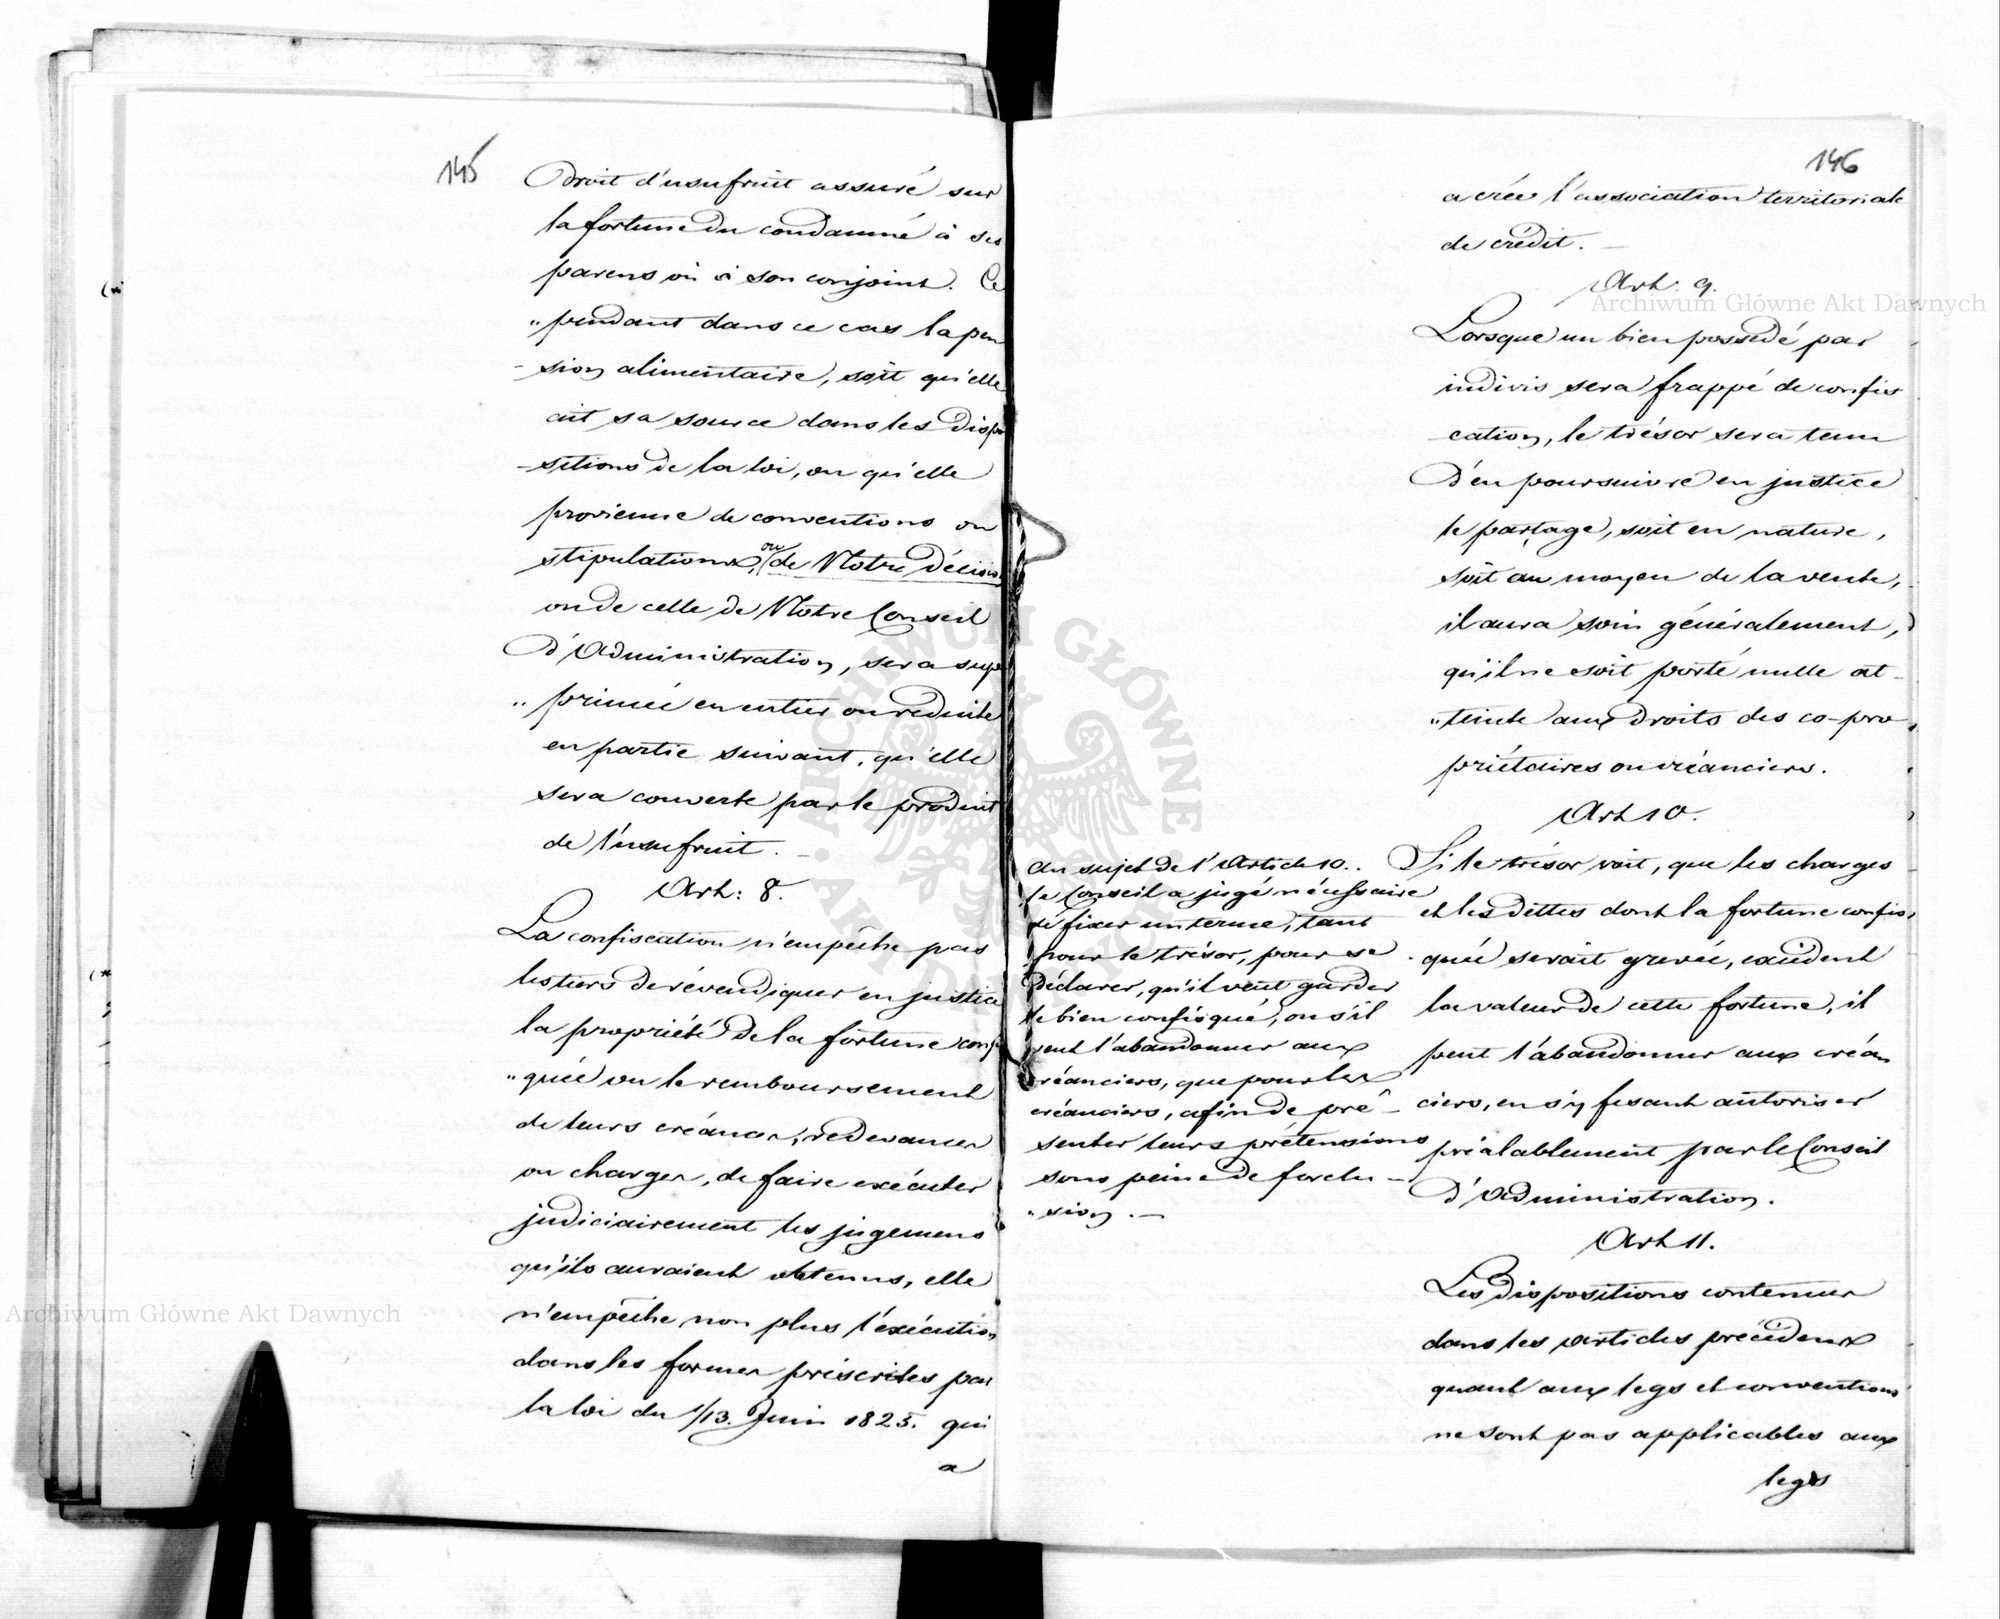 145
Droit d'usufruit assuré sur
la fortune du condamné à ses
parens où à son conjoint. Ce
"pendant dans ce cas la pen
-sion alimentaire, soit qu'elle
ait sa source dans les dispo
-sitions de la loi, ou qu'elle
provienne de conventions ou
stipulations, ou de Notre Décision
ou de celle de Notre Conseil
d'Administration, sera sup
"primée en entier ou réduite
en partie suivant, qu'elle
sera couverte par le produit
de l'usufruit. -
Art: 8.
La confiscation n'empêche pas
les tiers de révendiquer en justice
la propriété de la fortune confis
"quée ou le remboursement
de leurs créances, redevances
ou charges, de faire exécuter
judiciairement les jugemens
qu'ils auraient obtenus, elle
n'empêche non plus l'exécution
dans les formes préscrites par
la loi du 1/13. Juin 1825. qui
a
146
a crée l'association territoriale
de crédit. -
Art: 9.
Lorsque un bien possédé par
indivis sera frappé de confis
cation, le trésor sera tenu
d'en poursuivre en justice
le partage, soit en nature,
soit au moyen de la vente,
il aura soin généralement,
qu'il ne soit porté nulle at-
"teinte aux droits des co-pro
priétaires ou créanciers.
Art 10.
Si le trésor voit, que les charges
et les dettes dont la fortune confis
quée serait grevée, excédent
la valeur de cette fortune, il
peut l'abandonner aux créan
ciers, en s'y fesant autoriser
préalablement par le Conseil
d'Administration.
Au sujet de l'Article 10..
le Conseil a jugé nécessaire
de fixer un terme, tant
pour le trésor, pour se
déclarer, qu'il veut garder
le bien confisqué, ou s'il
veut l'abandonner aux
créanciers, que pour les
créanciers, afin de pré-
senter leurs prétensions
sous peine de forclu-
"sion. -
Art 11.
Les dispositions contenues
dans les articles précédens
quant aux legs et conventions
ne sont pas applicables aux
legs
Archiwum Główne Akt Dawnych
Archiwum Główne Akt Dawnych
ARCHIWUM GŁÓWNE AKT DAWNYCH